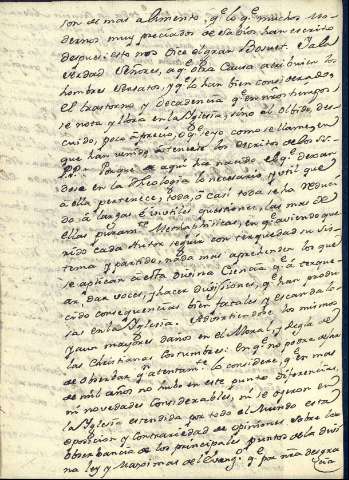 son de mas alimento; q.e lo q.e muchos mo-
dernos muy preciados de sabios han escrito
despues: esto nos dice el gran Bosuet. Y a la
verdad Señores, a q.e otra causa atribuien los
hombres sensatos, y q.e lo han bien considerado,
el trastorno y decadencia q.e en n̄ros tiempos
se nota y llora en la Yglesia, sino el olbido, des-
cuido, poco aprecio, ò q.e se yo como se llame, en
que han venido à tenerse los escritos de los S.S.
P.P.? Porque de aqui ha nacido el q.e dexan-
dose en la Theologia lo necesario, y util que
à ella pertenece, toda, ò casi toda se ha reduci-
do à largas è inutiles questiones, las mas de
ellas puram.te Metaphisicas, en q.e aviendo que-
rido cada Autor seguir con terquedad su sis-
tema y partido, nada mas aprehenden los que
se aplican à esta divina Ciencia q.e à terque-
ar, dar voces, y hacer divisiones, q.e han produ-
cido consequencias bien fatales y escandalo-
sas en la Yglesia. Advirtiendose los mismos
y aun mayores daños en el Moral, y regla de
las Christianas Costumbres: En q.e no podra dejar
de observar q.n atentam.te lo considere, q.e en mas
de mil años no hubo en este punto diferencias,
ni novedades considerables, ni se oyeron en
la Yglesia estendida por todo el Mundo esta
oposicion y contrariedad de opiniones sobre la
observancia de los principales puntos de la divi-
na ley y Maximas del Evang.o q.e por n̄ra desgra-
cia